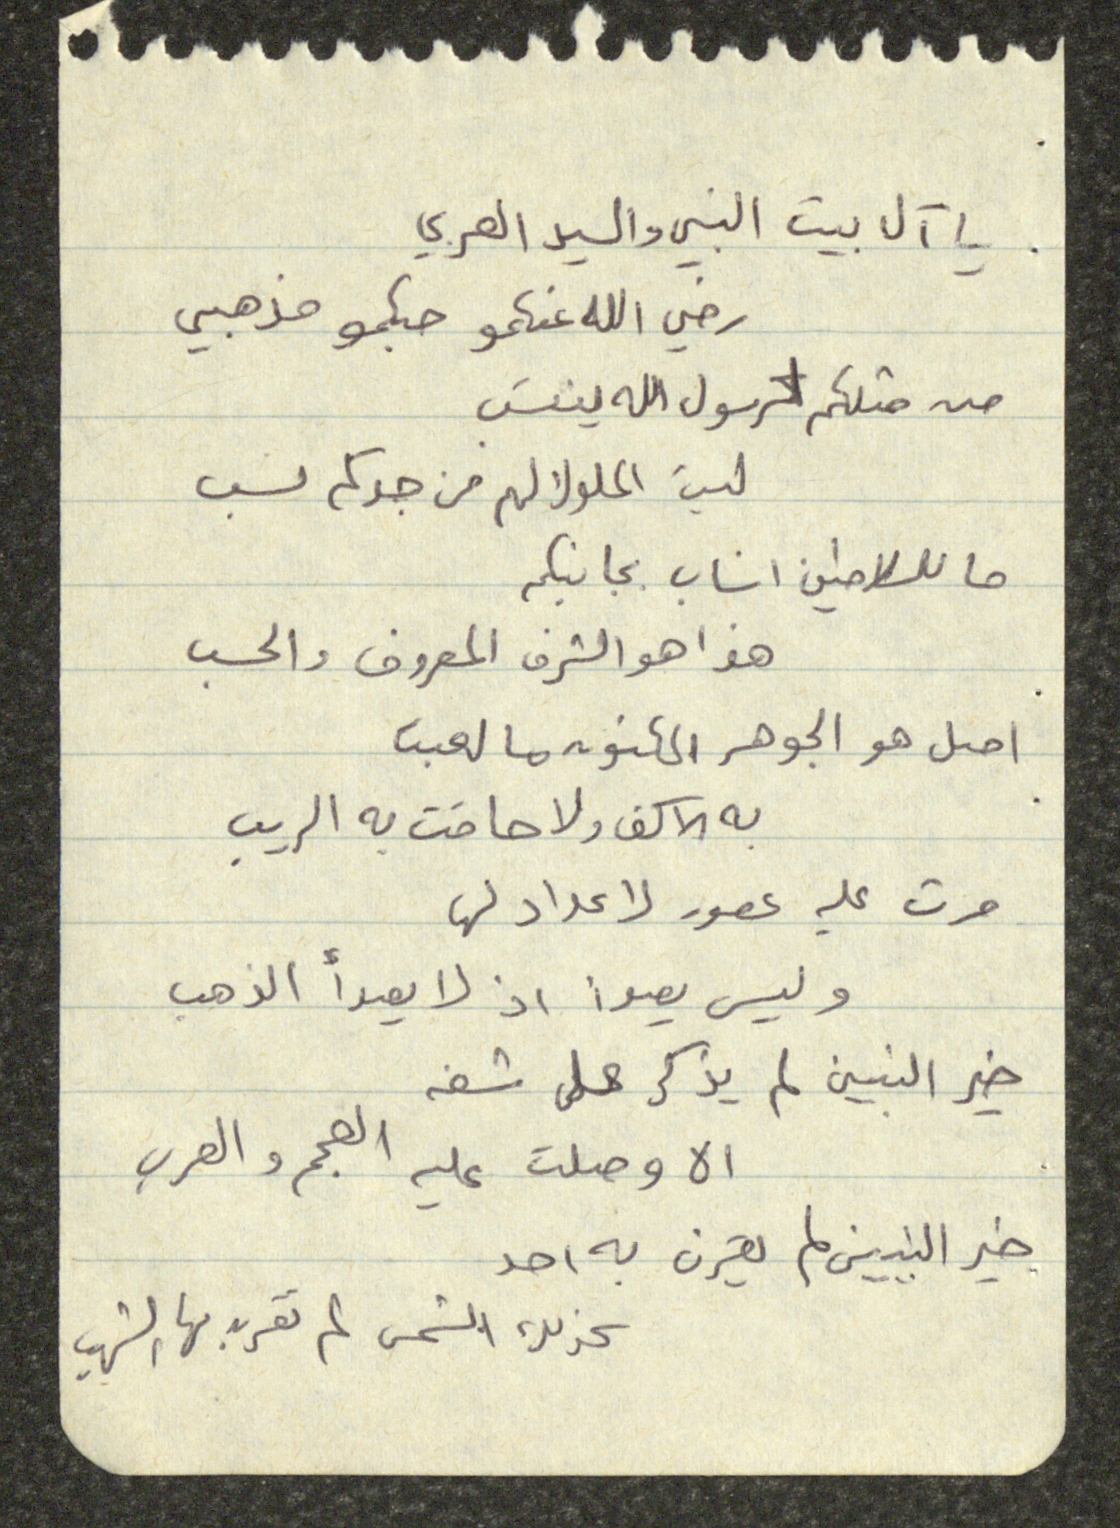 يا آل بيت النبي والسيد العربي
رضي الله عنكمو حبكمو مذهبي
من مثلكم لرسول الله ينتسب
ليت الملوك لهم من جدكم نسب
ما للسلاطين انساب بجانبكم
هذا هو الشرف المعروف والحسب
اصل هو الجوهر المكنون ما لعبت
به الاكف ولا حاقت به الريب
مرت عليه عصور لا عداد لها
وليس يصدأ اذ لا يصدأ الذهب
خير النبيين لم يذكر على شفه
الا وصلت عليه العجم والعرب
خير النبيين لم يقرن به احد
كذلك الشمس لم تقرن بها الشهب